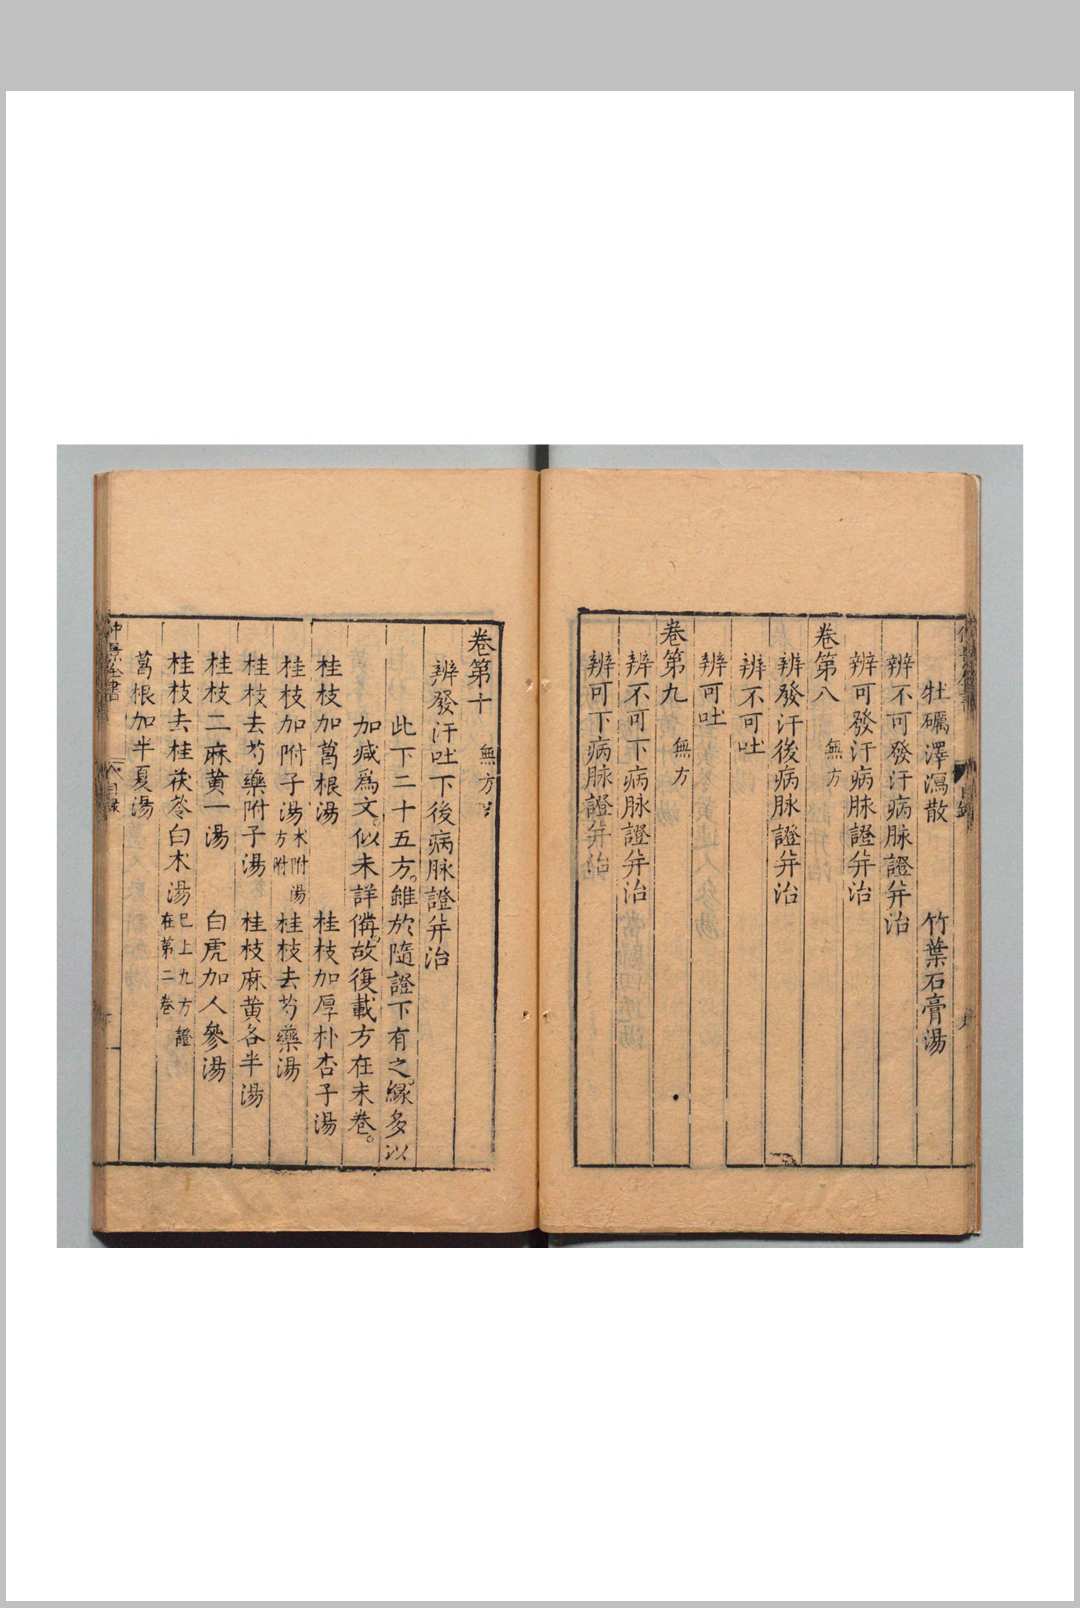 牡礪澤瀉散 竹葉石膏湯
辨不可發汗病脉證并治
辨可發汗病脉證并治
卷第八 無方
辨發汗後病脉證并治
辨不可吐
辨可吐
卷第九 無方
辨不可下病脉證并治
辨可下病脉證并治
卷第十 無方
辨發汗吐下後病脉證并治
此下二十五方。雖於隨證下有之。緣多以
加减爲文。似未詳俻。故復載方在末卷。
桂枝加葛根湯 桂枝加厚朴杏子湯
桂枝加附子湯 术附湯方附 桂枝去芍藥湯
桂枝去芍藥附子湯 桂枝麻黄各半湯
桂枝二麻黄一湯 白虎加人參湯
桂枝去桂茯苓白术湯 已上九方證在第二卷
葛根加半夏湯
仲景全書
目録